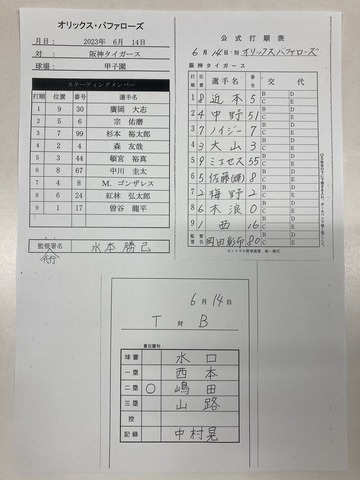 オリックス・バファローズ
月日： 2023年 6月 14日
対： 阪神タイガース
球場： 甲子園
スターティングメンバー
打順 位置 番号 選手名
1 9 30 廣岡 大志
2 5 6 宗 佑磨
3 7 99 杉本 裕太郎
4 2 4 森 友哉
5 3 44 頓宮 裕真
6 8 67 中川 圭太
7 4 8 M. ゴンザレス
8 6 24 紅林 弘太郎
9 1 17 曽谷 龍平
監督署名 水本勝己
代行
公式打順表
6月14日・対 オリックスバファローズ
阪神タイガース
打順 位置 選手名 交代
1 8 近本 5 B D C E
2 4 中野 51 B D C E
3 7 ノイジー 7 B D C E
4 3 大山 3 B D C E
5 9 ミエセス 55 B D C E
6 5 佐藤(輝) 8 B D C E
7 2 梅野 2 B D C E
8 6 木浪 0 B D C E
9 1 西 16 B D C E
監督署名 岡田彰布 80
6月14日
T 対 B
責任審判
球審 水口
一塁 西本
二塁 ○ 嶋田
三塁 山路
控
記録 中村晃